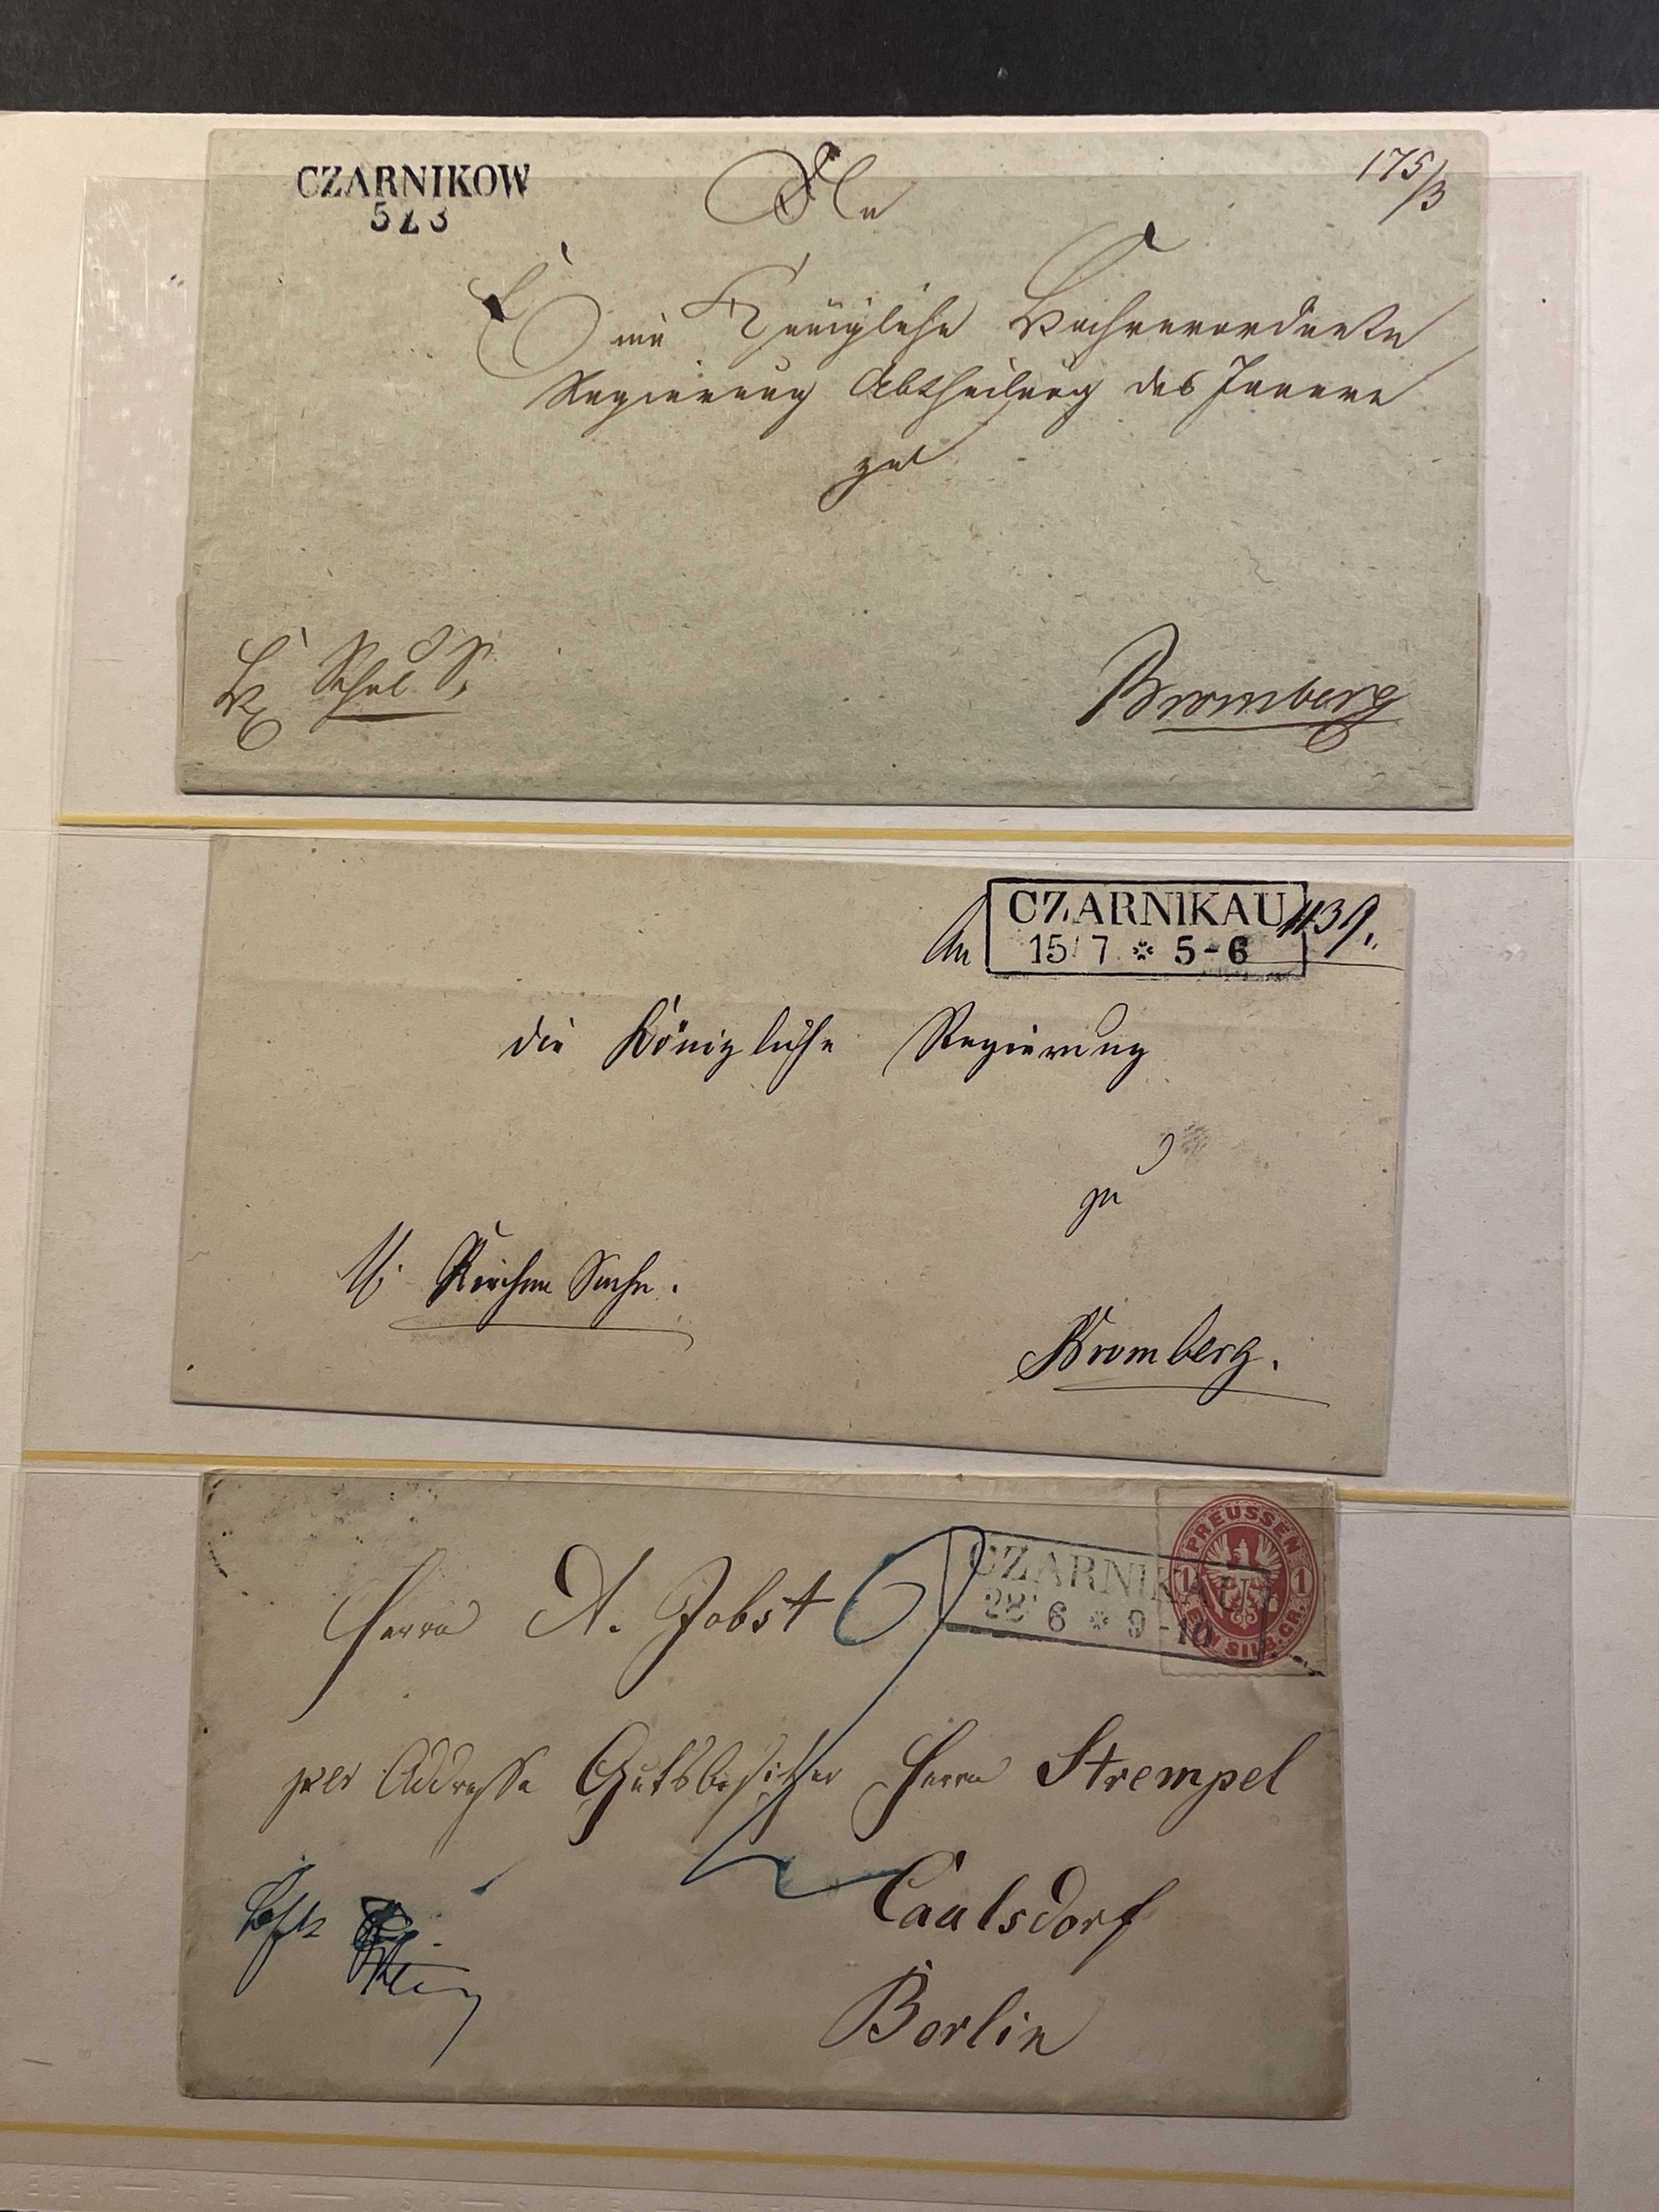 CZARNIKOW
5 2 3
An
175/3
Eine Königliche Hochverordnete
Regierung Abtheilung des Innern
zu
Schul S.
Bromberg
An
CZARNIKAU
15/7 * 5-6
die Königliche Regierung
zu
Kirchen Sache.
Bromberg.
PREUSSEN
1 1
EIN SILB.GR.
CZARNIKAU
28 6 * 9-10
Herrn A. Jobst
per Addresse Gutsbesitzer Herrn Strempel
Caalsdorf
Berlin